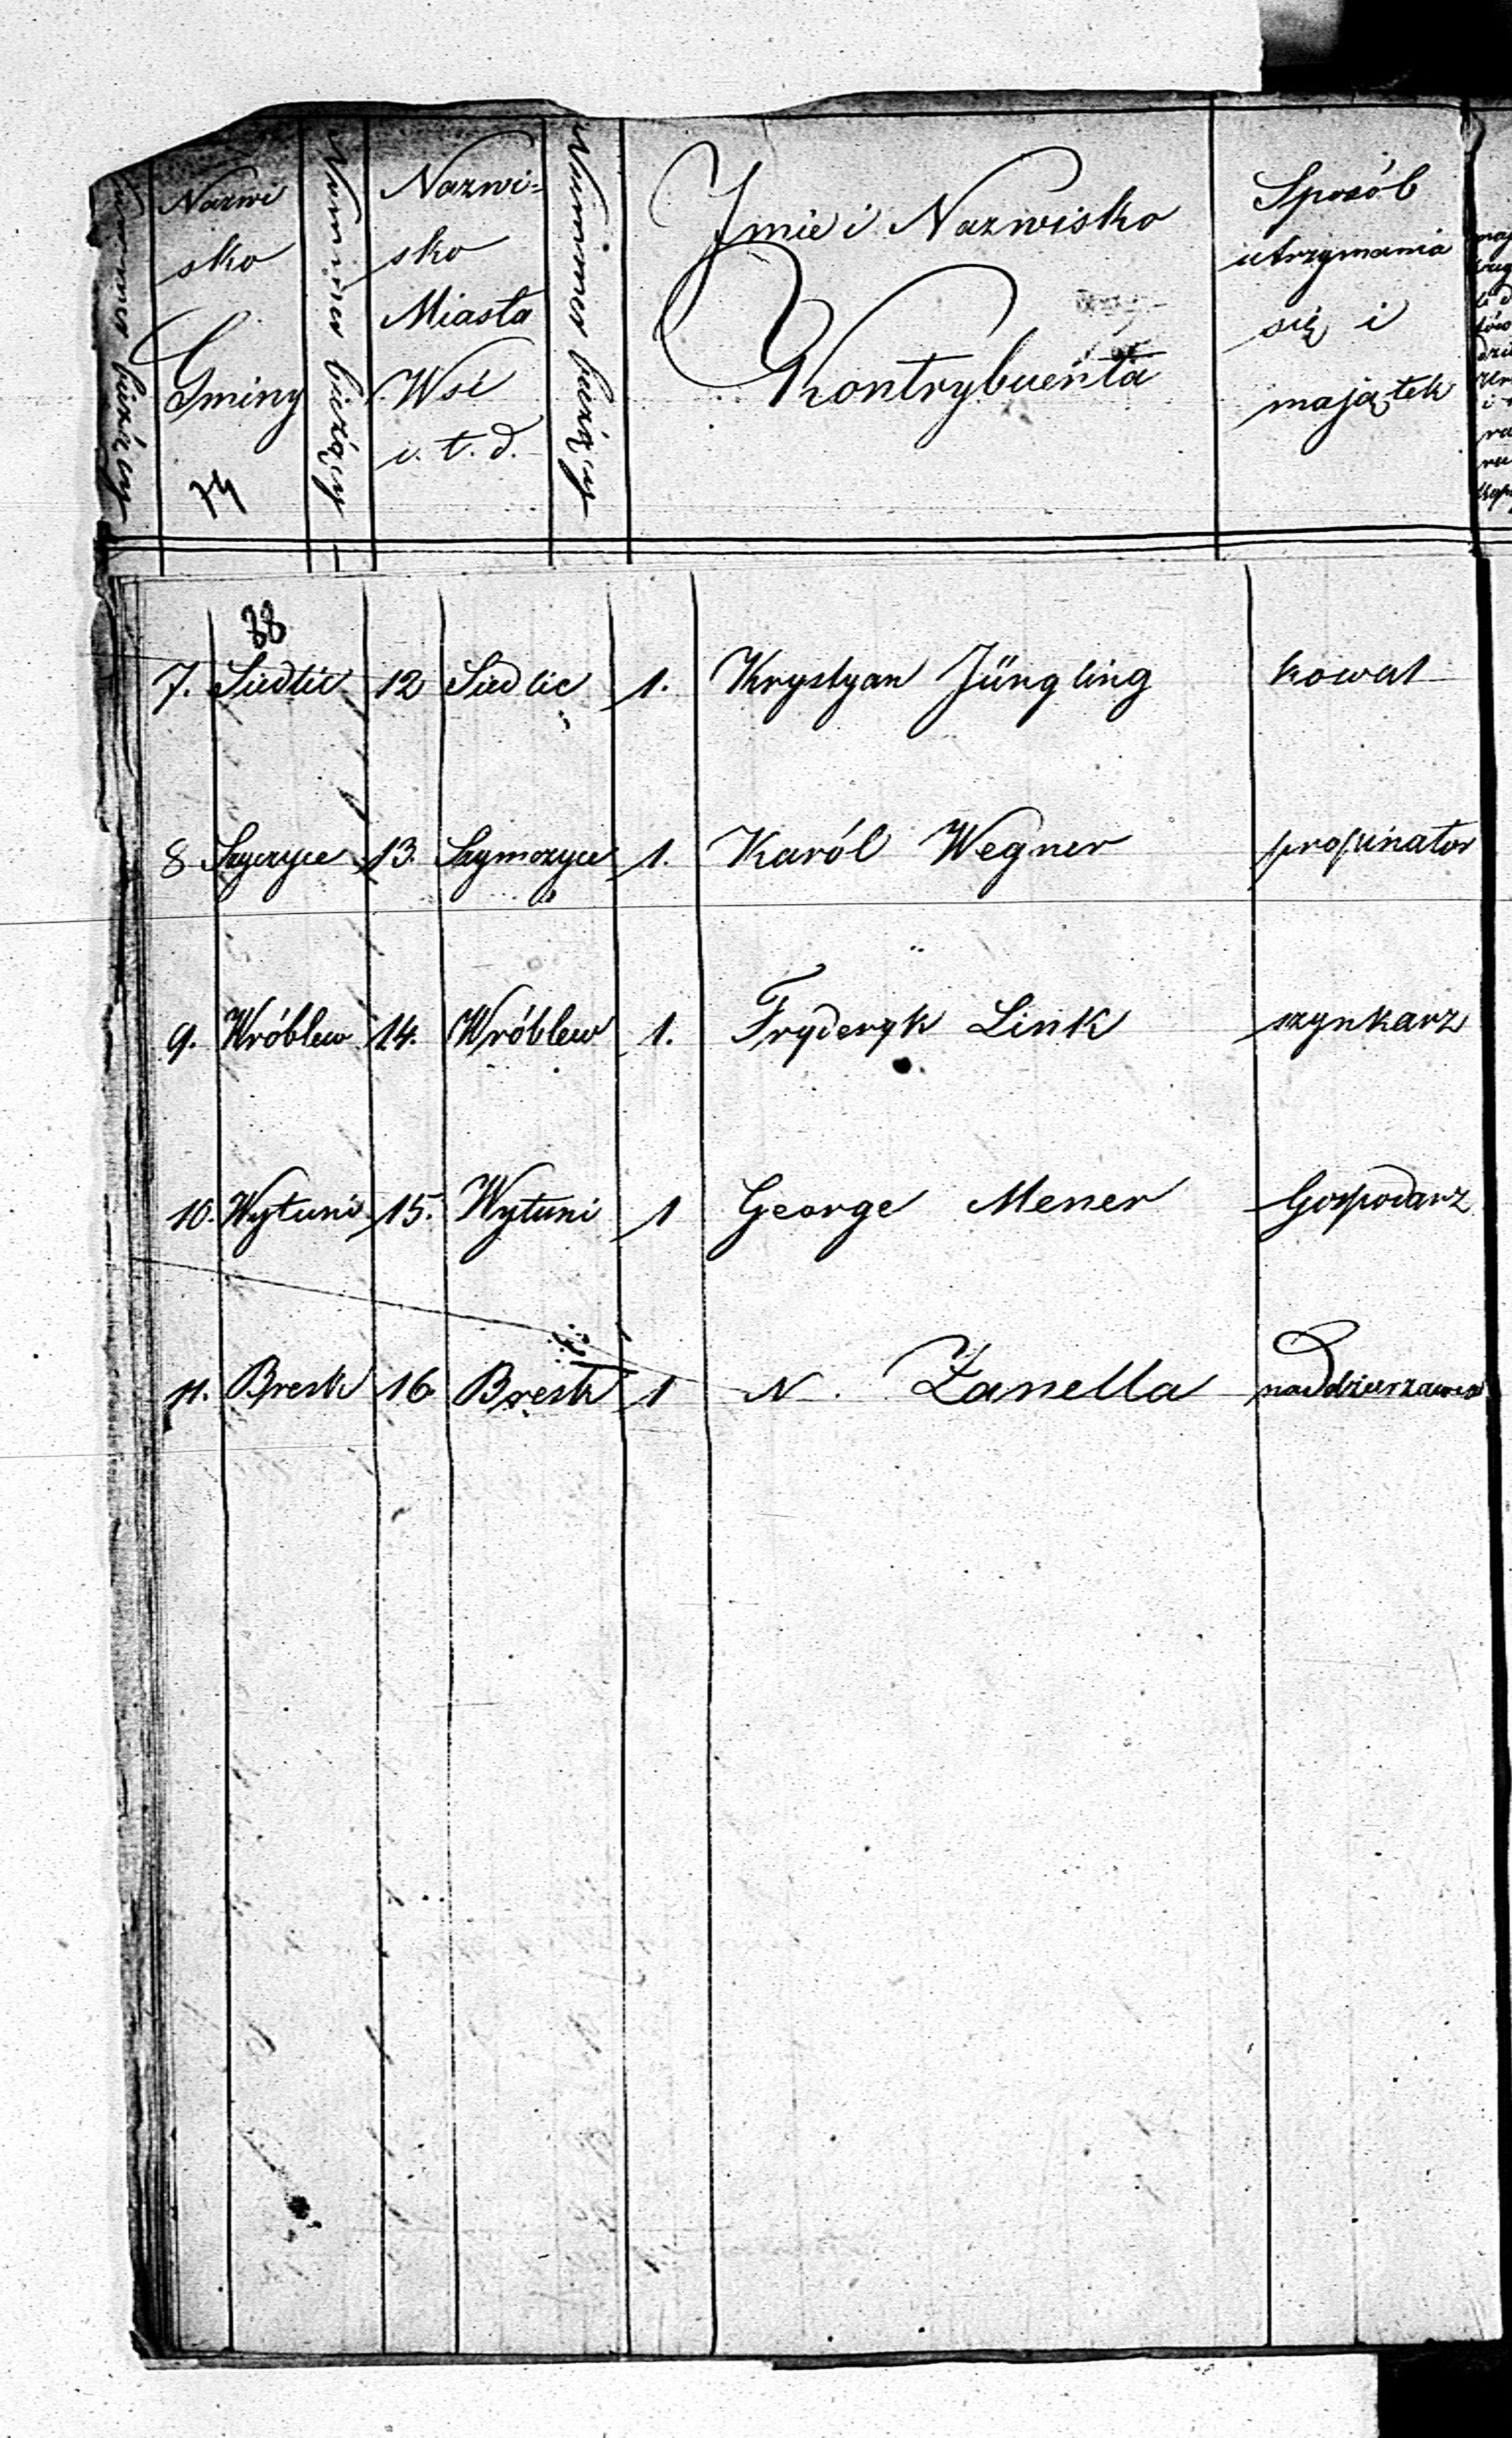 Nummer bieżący
Nazwi
sko
Gminy
74
Nummer bieżący
Nazwi=
sko
Miasta
Wsi
i. t. d.
Nummer bieżący
Imie i Nazwisko
Kontrybuenta
Sposób
utrzymania
się i
majątek
38
7. Siedlic 12 Siedlic 1. Krystyan Jüngling kowal
8 13. 1. Karól Wegner propinator
9. Wróblew 14. Wróblew 1. Fryderyk Link szynkarz
10. Wytuni 15. Wytuni 1 George Mener Gospodarz
11. Bresk 16 Bresk 1 N. Zanella naddzierzawca